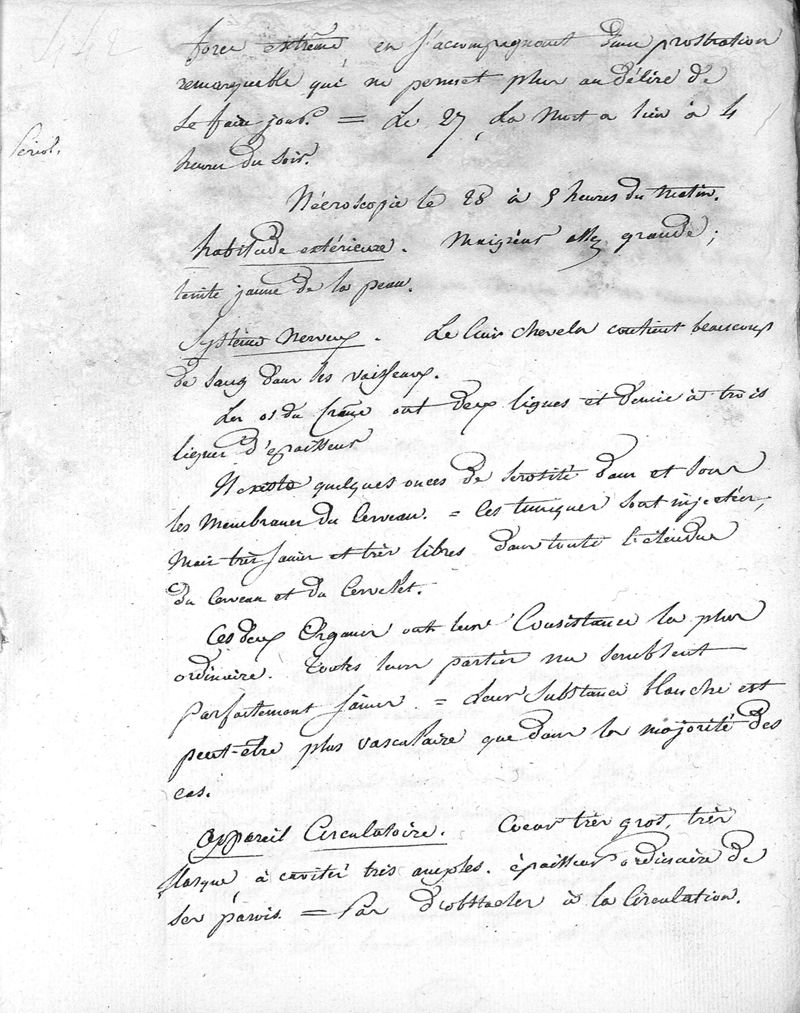 force extrême en s'accompagnant d'une prostration
remarquable qui ne permet plus au délire de
se faire jour. = Le 27, La Mort a lieu à 4
heures du soir.
Nécroscopie le 28 à 5 heures du Matin.
habitude extérieure. Maigreur assez grande;
teinte jaune de la peau.
Système Nerveux. Le Cuir chevelu contient beaucoup
de sang dans les vaisseaux.
Les os du Crâne ont deux lignes et demie à trois
lignes d'épaisseur
Il existe quelques onces de serosité dans et sous
les Membranes du Cerveau. = Ces tuniques sont injectées,
Mais très saines et très libres dans toute l'étendue
du Cerveau et du Cervelet.
Ces deux Organes ont leur Consistance la plus
ordinaire. Toutes leurs parties me semblent
parfaitement saines. = Leur substance blanche est
peut-être plus vasculaire que dans la majorité des
cas.
appareil Circulatoire. Coeur très gros, très
flasque à cavités très amples. épaisseur ordinaire de
ses parois. = Pas d'obstacles à la Circulation.